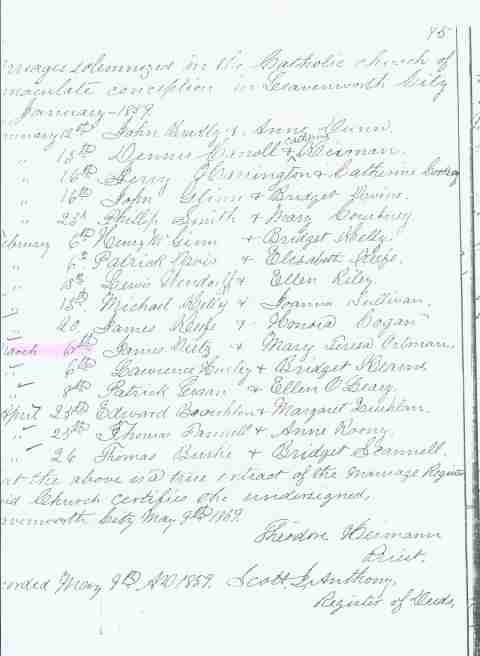 95
rriages solemnized in the Catholic church of
maculate conception in Leavenworth City
January - 1859.
nuary 12th John Bradly & Anne Dunn.
" 13th Dennis Carroll & Cathrine Heirnan.
" 16th Jerry Harrington & Catherine
" 16th John Glinn & Bridget Devine.
" 23d Phillip Smith & Mary Courtney
ebruary 6th Henry McGinn & Bridget Kelly.
" 6th Patrick Davis & Elisabeth Keefe.
" 13th Lewis & Ellen Riley.
" 13th Michael Kelly & Joanna Sullivan.
" 20 James Keefe & Honora Cogan
March 6th James & Mary Teresa
" 6th Lawrence Hurley & Bridget Kearns
" 8th Patrick & Ellen O'Leary.
April 25th Edward & Margaret
" 25th Thomas & Anne Roony.
" 26 Thomas Burke & Bridget Scannell.
at the above is a true extract of the Marriage Regis
id Church certifies the undersigned,
avenworth City May 9th 1859.
Theodore Heimann
Priest.
corded May 9th AD 1859. Scott J. Anthony,
Register of Deeds,